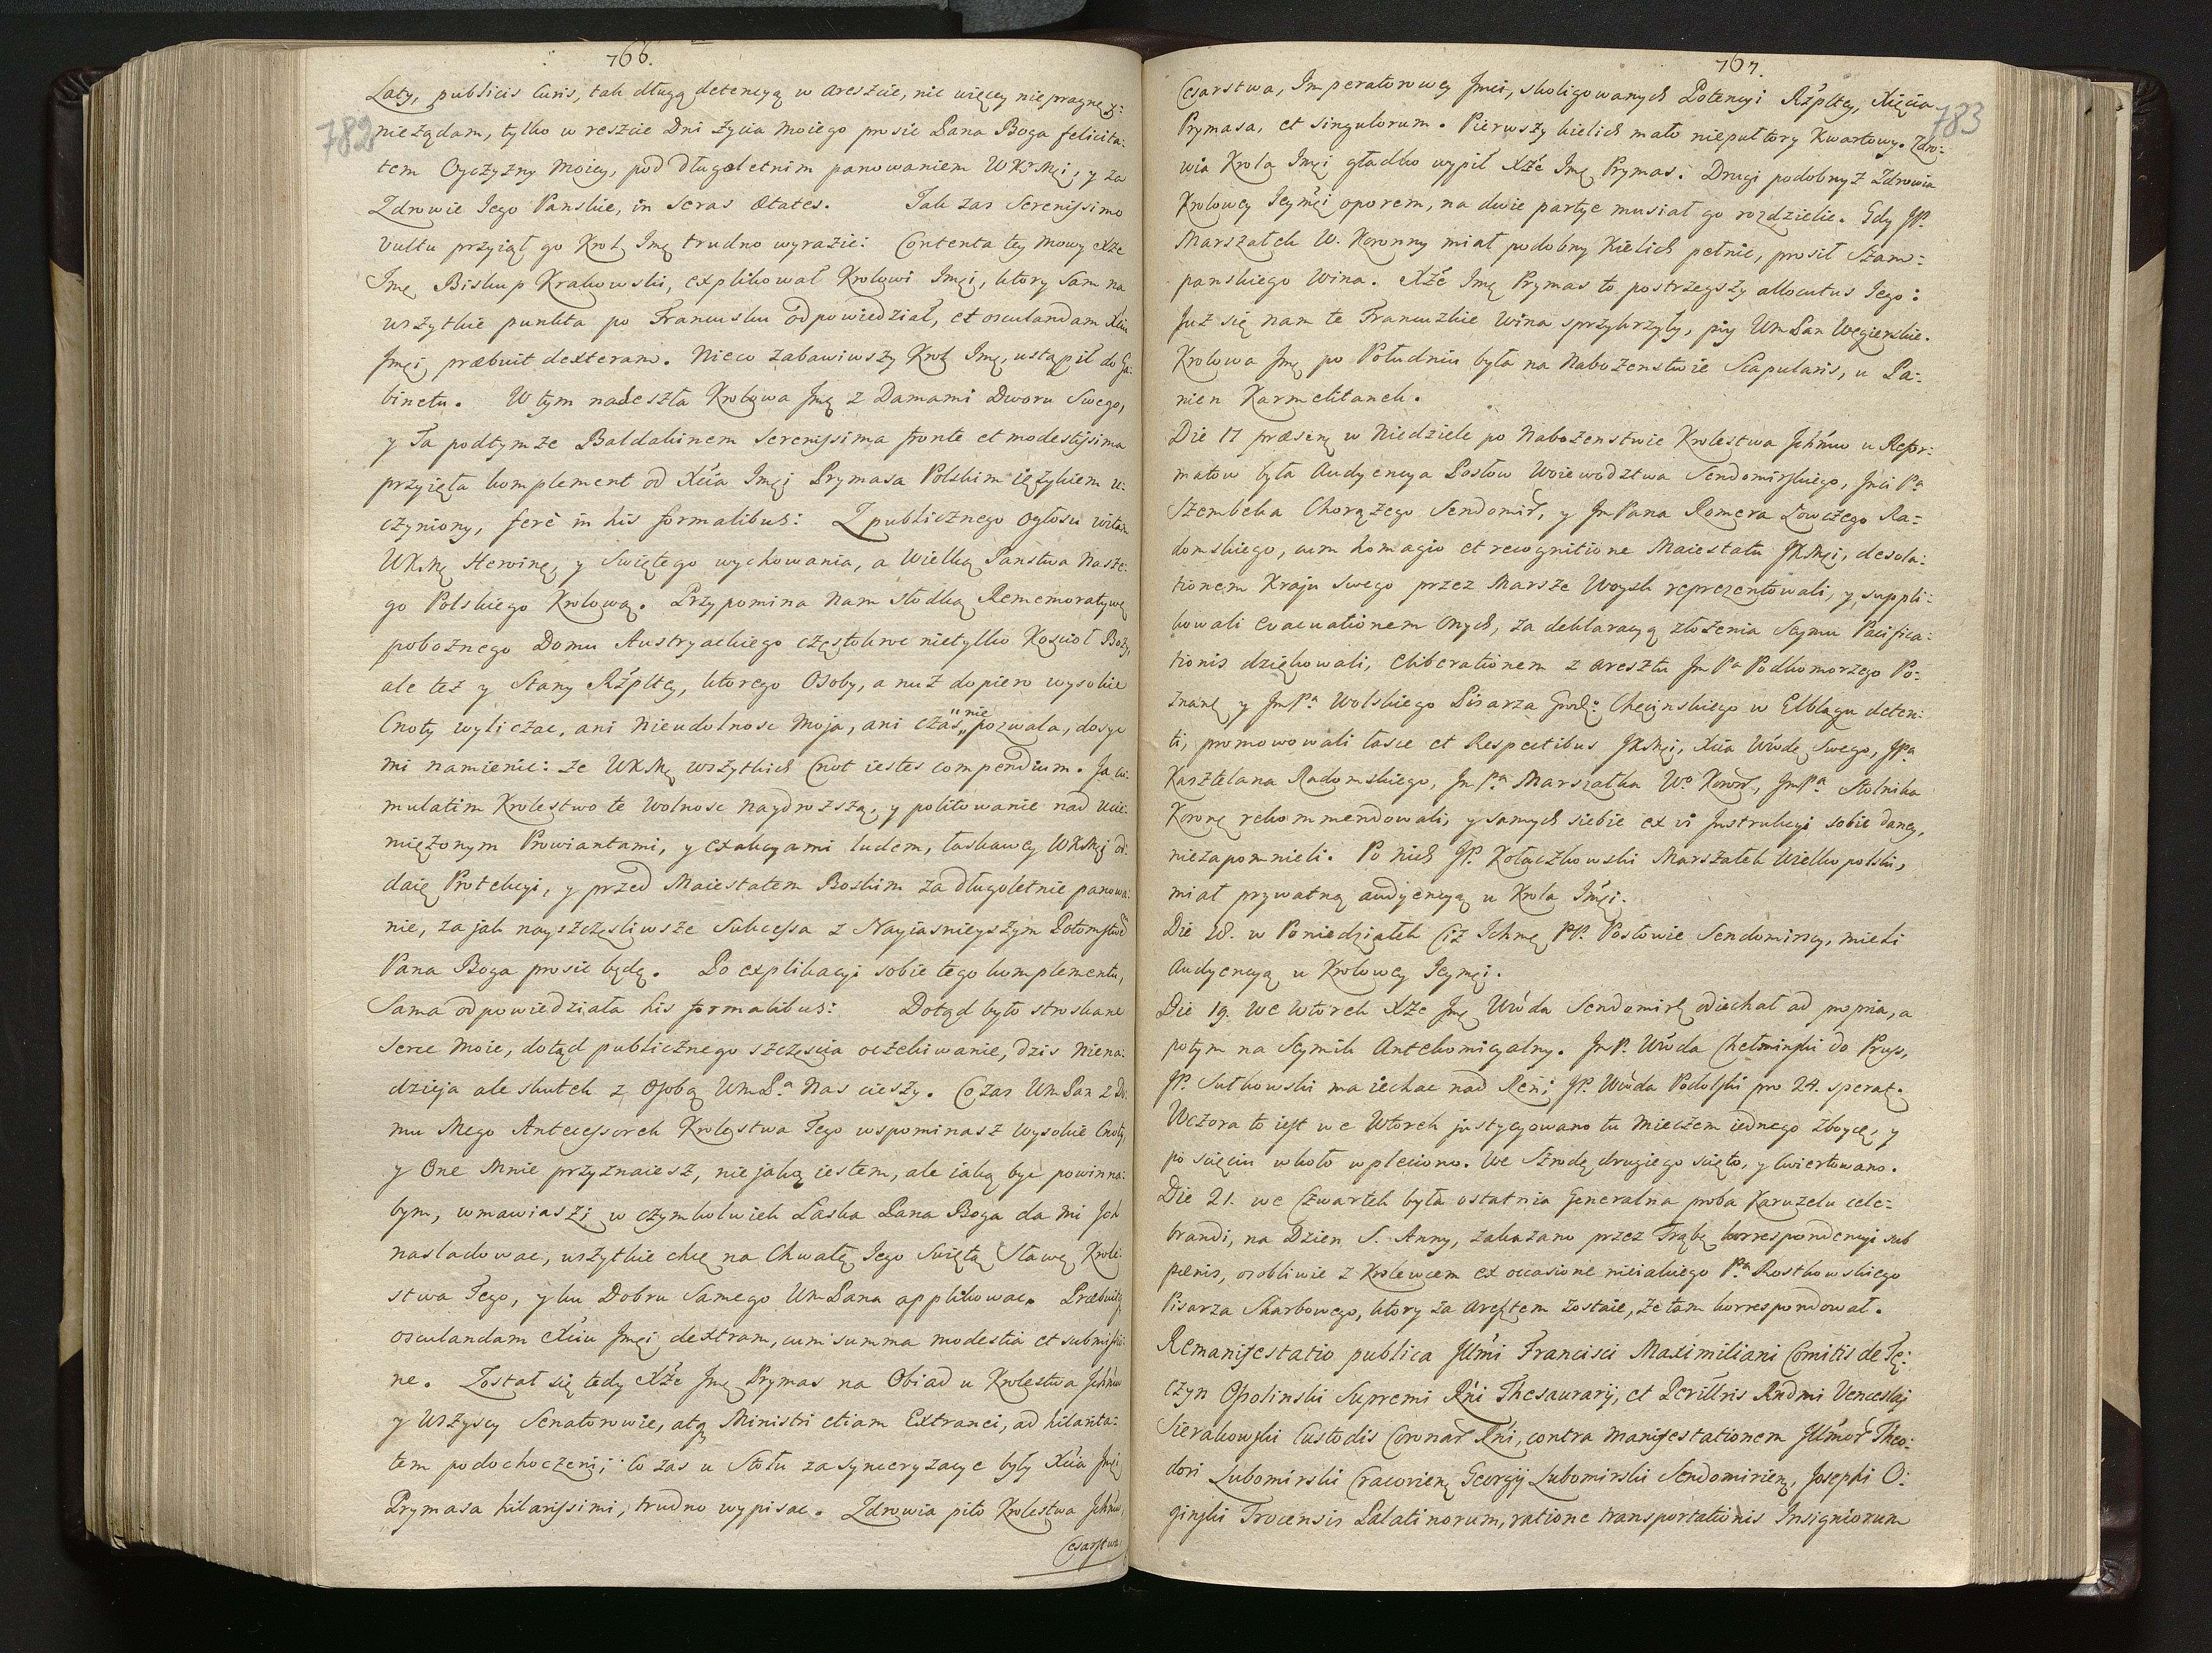 766.
782
Laty, publicis Curis, tak długą detencyą w areszcie, nic więcey niepragnę y:
nieżądam, tylko w reszcie Dni życia moiego prosic Pana Boga felicita:
tem Oyczyzny Moiey, pod długoletnim panowaniem WKrMci, y za
Zdrowie Iego Panskie, in seras ætates. Tak zas Serenissimo
vultu przyiął go Krol Imę trudno wyrazic: Contenta tey mowy Xże
Imę Biskup Krakowski, explikował Krolowi Imęi, ktory sam na
wszytkie punkta po Francusku odpowiedział, et osculandam Xciu
Jmęi præbuit dexteram. Nieco zabawiwszy Krol Imę, ustąpił do Ga:
binetu. W tym nadeszła Krolowa Jmę z Damami Dworu Swego,
y Ta podtymze Baldakinem Serenissima fronte et modestissima
przyięła komplement od Xcia Imęi Prymasa Polskim ięzykiem u:
czyniony, ferè in his formalibus: Z publicznego ogłosu witam
WKMę Heroinę, y Swiętego wychowania, a Wielką Panstwa Nasze:
go Polskiego Krolową. Przypomina Nam słodką Rememoratywę
pobożnego Domu Austryackiego częstokroc nietylko Kosciół Boży,
ale też y Stany Rżpltey, ktorego Osoby, a nuż dopiero wysokie
Cnoty wyliczac, ani Nieudolnosc Moja, ani czas „nie pozwala, dosyc
mi namienic: ze WKMę wszytkich Cnot iestes compendium. Ja cu:
mulatim Krolestwo te Wolnosc Naydrozszą, y politowanie nad ucie:
miężonym Prowiantami, y exakcyami ludem, łaskawey WKMęi od:
daię Protekcyi, y przed Maiestatem Boskim za długoletnie panowa:
nie, za jak nayszczęsliwsze Sukcessa z Nayiasnieyszym Potomstwe
Pana Boga prosic będę. Po explikacyi sobie tego komplementu,
Sama odpowiedziała his formalibus: Dotąd było stroskane
Serce Moie, dotąd publicznego szczęscia oczekiwanie, dzis Niena:
dzieja ale skutek z Osobą UmPa Nas cieszy. Co zas Um Pan z Do:
mu Mego Antecessorek Krolestwa Tego wspominasz Wysokie Cnoty,
y One Mnie przyznaiesz, nie jaką iestem, ale iaką byc powinna:
bym, wmawiasz; w czymkolwiek Łaska Pana Boga da mi Ich
nasladowac, wszytkie chcę na Chwałę Iego Swiętą, Sławę Krole:
stwa Tego, y ku Dobru Samego Um Pana applikowac. Præbuitq
osculandam Xciu Jmęi dextram, cum summa modestia et submissio:
ne. Został się tedy Xże Jmę Prymas na Obiad u Krolestwa Jchmw
y Wszyscy Senatorowie, atq Ministri etiam Extranei, ad hilarita:
tem podochoczeni; Co zas u Stołu za synceryzacye były Xcia Jmęi
Prymasa hilarissimi, trudno wypisac. Zdrowia piło Krolestwa Jchmw,
Cesarstwa
767.
783
Cesarstwa, Imperatorowey Jmci, skoligowanych Potencyi Rżpltey, Xięcia
Prymasa, et singulorum. Pierwszy kielich mało niepułtory Kwartowy. Zdro:
wia Krola Imęi gładko wypił Xże Imę Prymas. Drugi podobnyż Zdrowia
Krolowey Ieymci oporem, na dwie partye musiał go rozdzielic. Gdy JP.
Marszałek W. Koronny miał podobny Kielich pełnic, prosił Szam:
panskiego Wina. Xże Imę Prymas to postrzegszy allocutus Iego:
Już się nam te Francuzkie Wina sprzykrzyły, piy Um Pan Węgierskie.
Krolowa Jmę po Południu była na Nabożenstwie Scapularis, u Pa:
nien Karmelitanek.
Die 17 præsenę w Niedziele po Nabożenstwie Krolestwa Jchmw u Refor:
matow była Audyencya Posłow Woiewodztwa Sendomirskiego, Jmci Pa
Szembeka Chorążego Sendomir, y Jm Pana Romera Łowczego Ra:
domskiego, cum homagio et recognitione Maiestatu JKMęi, desola:
tionem Kraju Swego przez Marsze Woysk reprezentowali, y suppli:
kowali evacuationem Onych, za deklaracyą złożenia Seymu Pacifica:
tionis dziękowali, eliberationem z aresztu Jm Pa Podkomorzego Po:
znanę y JmPa Wolskiego Pisarza Grodz: Chęcinskiego w Elblągu deten:
ti, promowowali łasce et Respectibus JKMęi, Xcia Wwdę swego, JPa
Kasztelana Radomskiego, JmPa Marszałka Wo Koron, JmPa Stolnika
Koronę rekommendowali, y samych siebie ex vi Instrukcyi sobie daney,
niezapomnieli. Po nich JP. Kołaczkowski Marszałek Wielkopolski,
miał prywatną audyencyą u Krola Imęi.
Die 18. w Poniedziałek Ciż Ichmę PP. Posłowie Sendomirscy, mieli
Audyencyą u Krolowey Ieymęi.
Die 19. we Wtorek Xże Jmę Wwda Sendomirę odiechał ad propria, a
potym na Seymik Antekomicyalny. JmP. Wwda Chełminski do Prus,
JP. Sułkowski ma iechac nad Ren; JP. Wwda Podolski pro 24. speratę.
Wczora to iest we Wtorek justycyowano tu Mieczem iednego zboycę, y
po scięciu wkoło wpleciono. We Srzodę drugiego scięto, y cwiertowano.
Die 21. we Czwartek była ostatnia Generalna proba Karuzelu cele:
brandi, na Dzien S. Anny, zakazano przez Trąbę korrespondencyi sub
pœnis, osobliwie z Krolewcem ex occasione nieiakiego Pa Rostkowskiego
Pisarza Skarbowego, ktory za aresztem zostaie, ze tam korrespondował.
Remanifestatio publica Jllmi Francisci Maximiliani Comitis de Tę:
czyn Ossolinski Supremi Rni Thesaurarij, et Perillris Rndmi Venceslaj
Sierakowski Custodis Coronar Rni, contra Manifestationem Jllmor Theo:
dori Lubomirski Cracovienę Georgij Lubomirski Sendomirienę, Josephi O:
ginski Trocensis Palatinorum, ratione transportationis Insigniorum